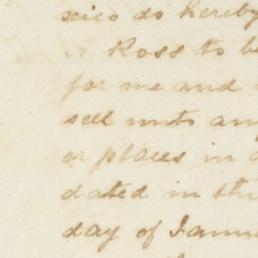 xico do hereby
Ross to be
for me and
sell unto any
or places in
dated in this
day of Janu